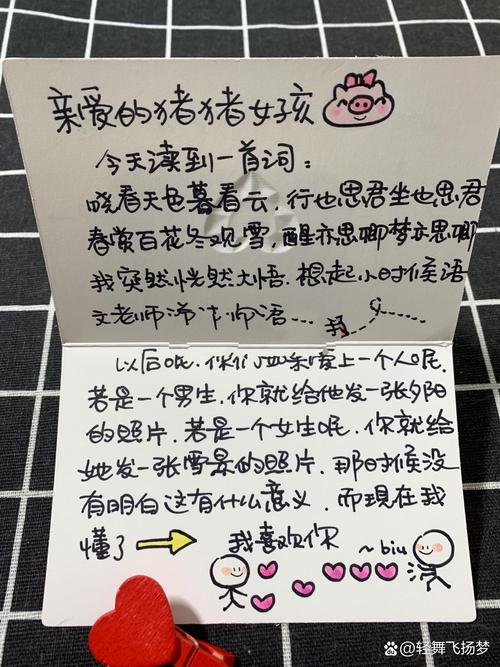 亲爱的猪猪女孩
今天读到一首词：
晓看天色暮看云，行也思君坐也思君
春赏百花冬观雪，醒亦思卿梦亦思卿
我突然恍然大悟．想起小时候语
文老师常常说
以后呢，你们如果爱上一个人呢．
若是一个男生，你就给他发一张夕阳
的照片．若是一个女生呢．你就给
她发一张雪景的照片．那时候没
有明白这有什么意义．而现在我
懂了 我喜欢你
~biu
@轻舞飞扬梦